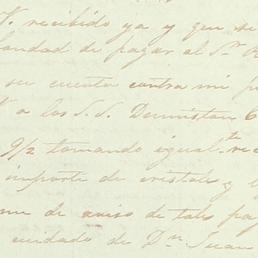 recibido ya y que se
bondad de pagar al Sr
su cuenta contra mi
a los S.S. Dennistun
9/2 tomando igual.te re
importe de cristales y
me de aviso de tales pa
cuidado de Dn Juan